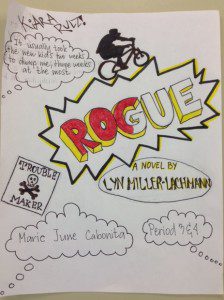 KIARA RULZ!
It usually took
the new kids two weeks
to dump me, three weeks
at the most.
ROGUE
A NOVEL BY
LYN MILLER-LACHMANN
TROUBLE
MAKER
Marie June Cabonita
Period 3&4